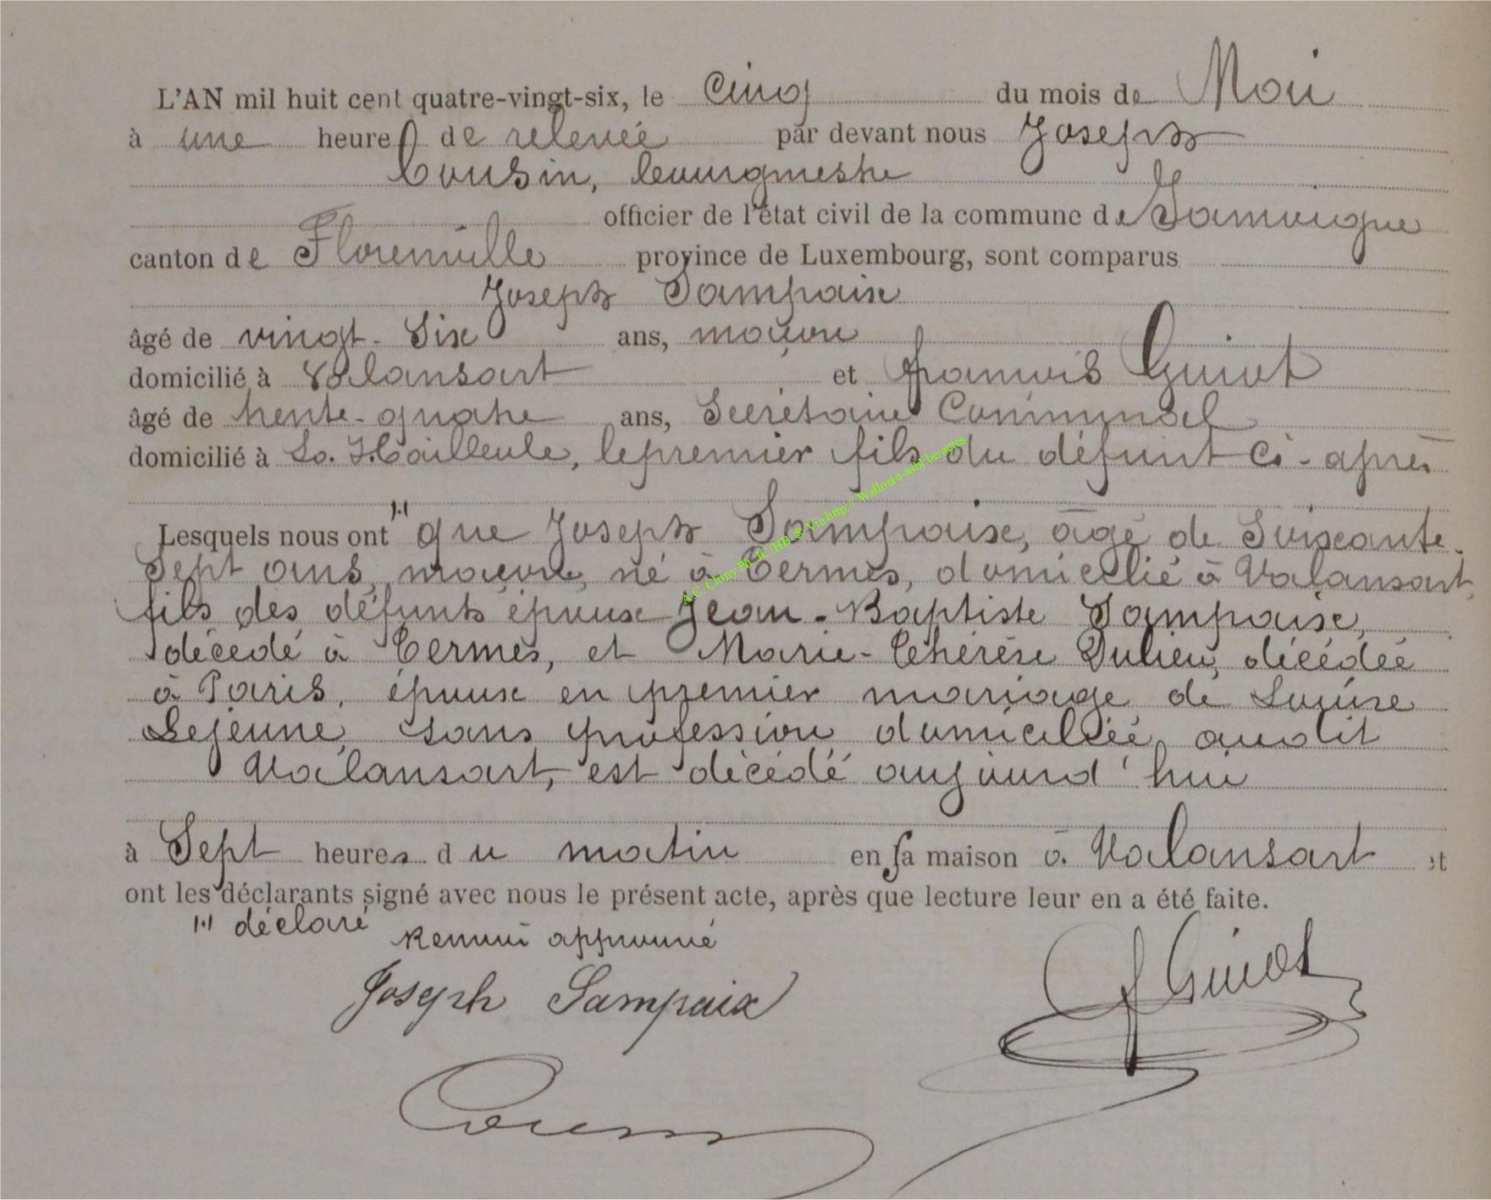 L'AN mil huit cent quatre-vingt-six, le cinq du mois de Mai
à une heure de relevée par devant nous Joseph
Cousin, bourgmestre
officier de l'état civil de la commune de Jamoigne
canton de Florenville province de Luxembourg, sont comparus
Joseph Sampaix
âgé de vingt-six ans, maçon
domicilié à Valansart et françois Guiot
âgé de trente-quatre ans, Secrétaire Communal
domicilié à La Hailleule, le premier fils du défunt ci-après
Lesquels nous ont 1·1 que Joseph Sampaix, âgé de Soixante-
Sept ans, maçon, né à Termes, domicilié à Valansart,
fils des défunts époux Jean-Baptiste Sampaix,
décédé à Termes, et Marie-Thérèse Dulieu, décédée
à Paris, époux en premier mariage de Louise
Lejeune, sans profession domiciliée audit
Valansart, est décédé aujourd'hui
à Sept heures du matin en sa maison à Valansart et
ont les déclarants signé avec nous le présent acte, après que lecture leur en a été faite.
1·1 déclaré Renvoi approuvé
Joseph Sampaix
f Guiot
Cousin